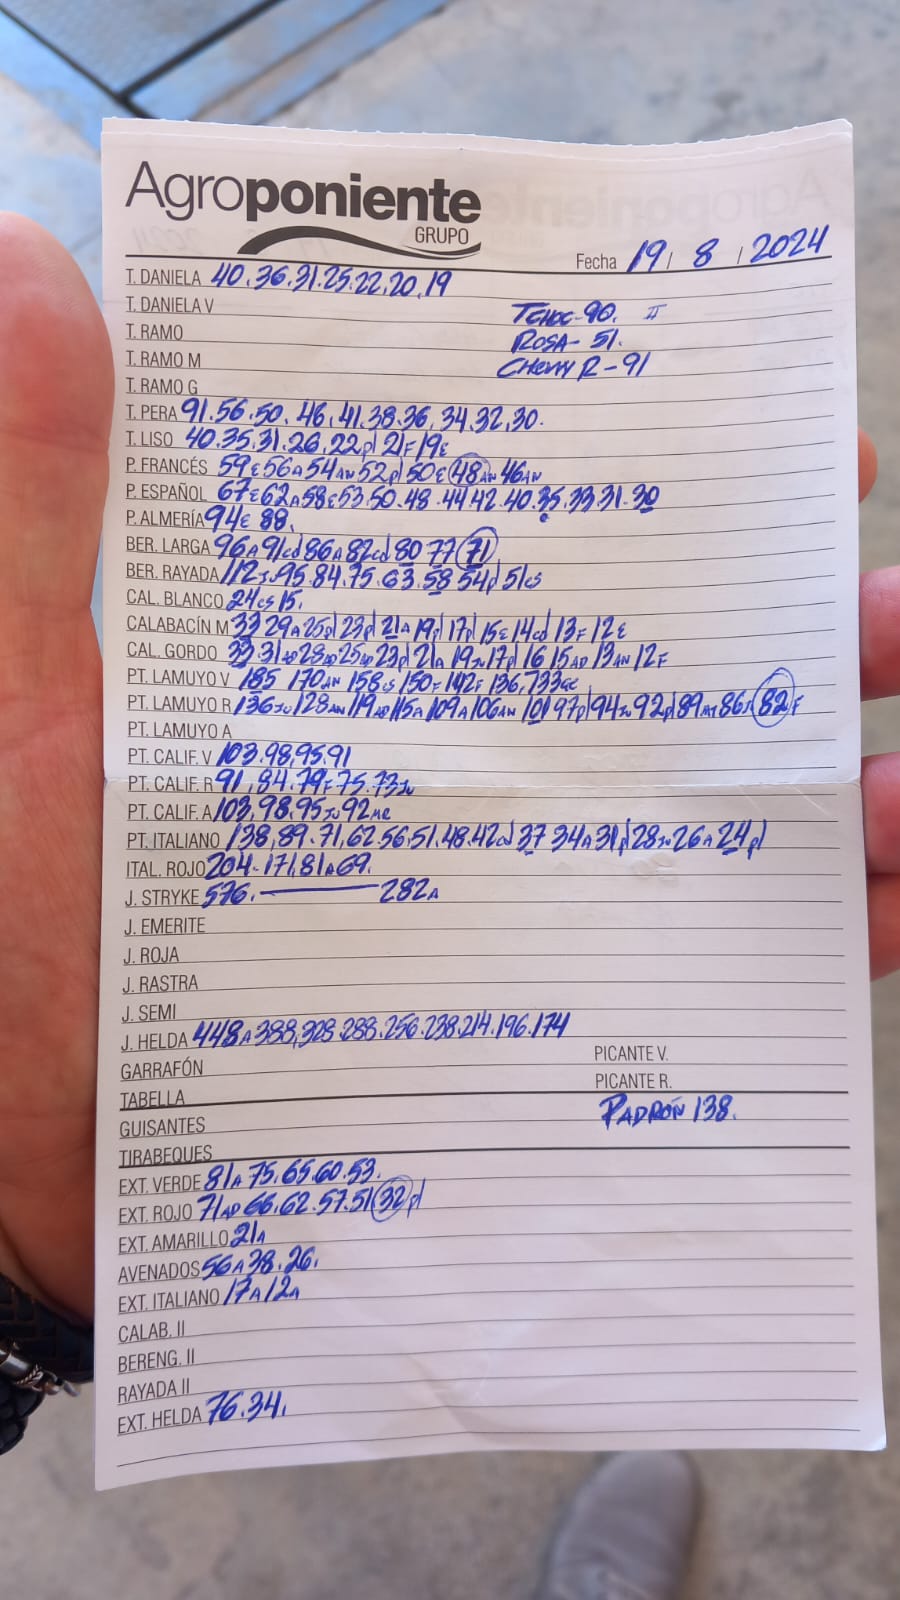 Agroponiente
GRUPO
Fecha 19 / 8 / 2024
T. DANIELA 40.36.31.25.22.20.19
T. DANIELA V
TCHOC-90. II
T. RAMO
ROSA-51.
T. RAMO M
CHERRY R-91
T. RAMO G
T. PERA 91.56.50.46.41.38.36.34.32.30.
T. LISO 40.35.31.26.22pl 21F 19E
P. FRANCÉS 59E 56A 54AN 52pl 50E 48AN 46AN
P. ESPAÑOL 67E 62A 58E 53.50.48.44 42.40.35.33.31.30
P. ALMERÍA 94E 88.
BER. LARGA 96A 91cd 86A 82cd 80 77 71
BER. RAYADA 112Ju 95.84.75.63.58 54pl 51cs
CAL. BLANCO 24cs 15.
CALABACÍN M 33 29A 25pl 23pl 21A 19pl 17pl 15E 14cd 13F 12E
CAL. GORDO 33 31AD 28AD 25AD 23pl 21A 19Ju 17pl 16 15AD 13AN 12F
PT. LAMUYO V 185 170AN 158cs 150F 142F 136,733GC
PT. LAMUYO R 136Ju 128AN 119AD 115A 109A 106AN 101 97pl 94Ju 92pl 89AT 86J 82F
PT. LAMUYO A
PT. CALIF. V 103.98.95.91
PT. CALIF. R 91.84.79F 75.73Ju
PT. CALIF. A 103.98.95Ju 92MC
PT. ITALIANO 138,89.71,62.56.51.48.42cd 37 34A 31pl 28Ju 26A 24pl
ITAL. ROJO 204-171.81A 69.
J. STRYKE 576. — 282A
J. EMERITE
J. ROJA
J. RASTRA
J. SEMI
J. HELDA 448A 388,328.288.256.238.214.196.174
GARRAFÓN
PICANTE V.
TABELLA
PICANTE R.
GUISANTES
PADRÓN 138.
TIRABEQUES
EXT. VERDE 81A 75.65.60.53.
EXT. ROJO 71AD 66.62.57.51 32pl
EXT. AMARILLO 21A
AVENADOS 56A 38.26.
EXT. ITALIANO 17A 12A
CALAB. II
BERENG. II
RAYADA II
EXT. HELDA 76.34.